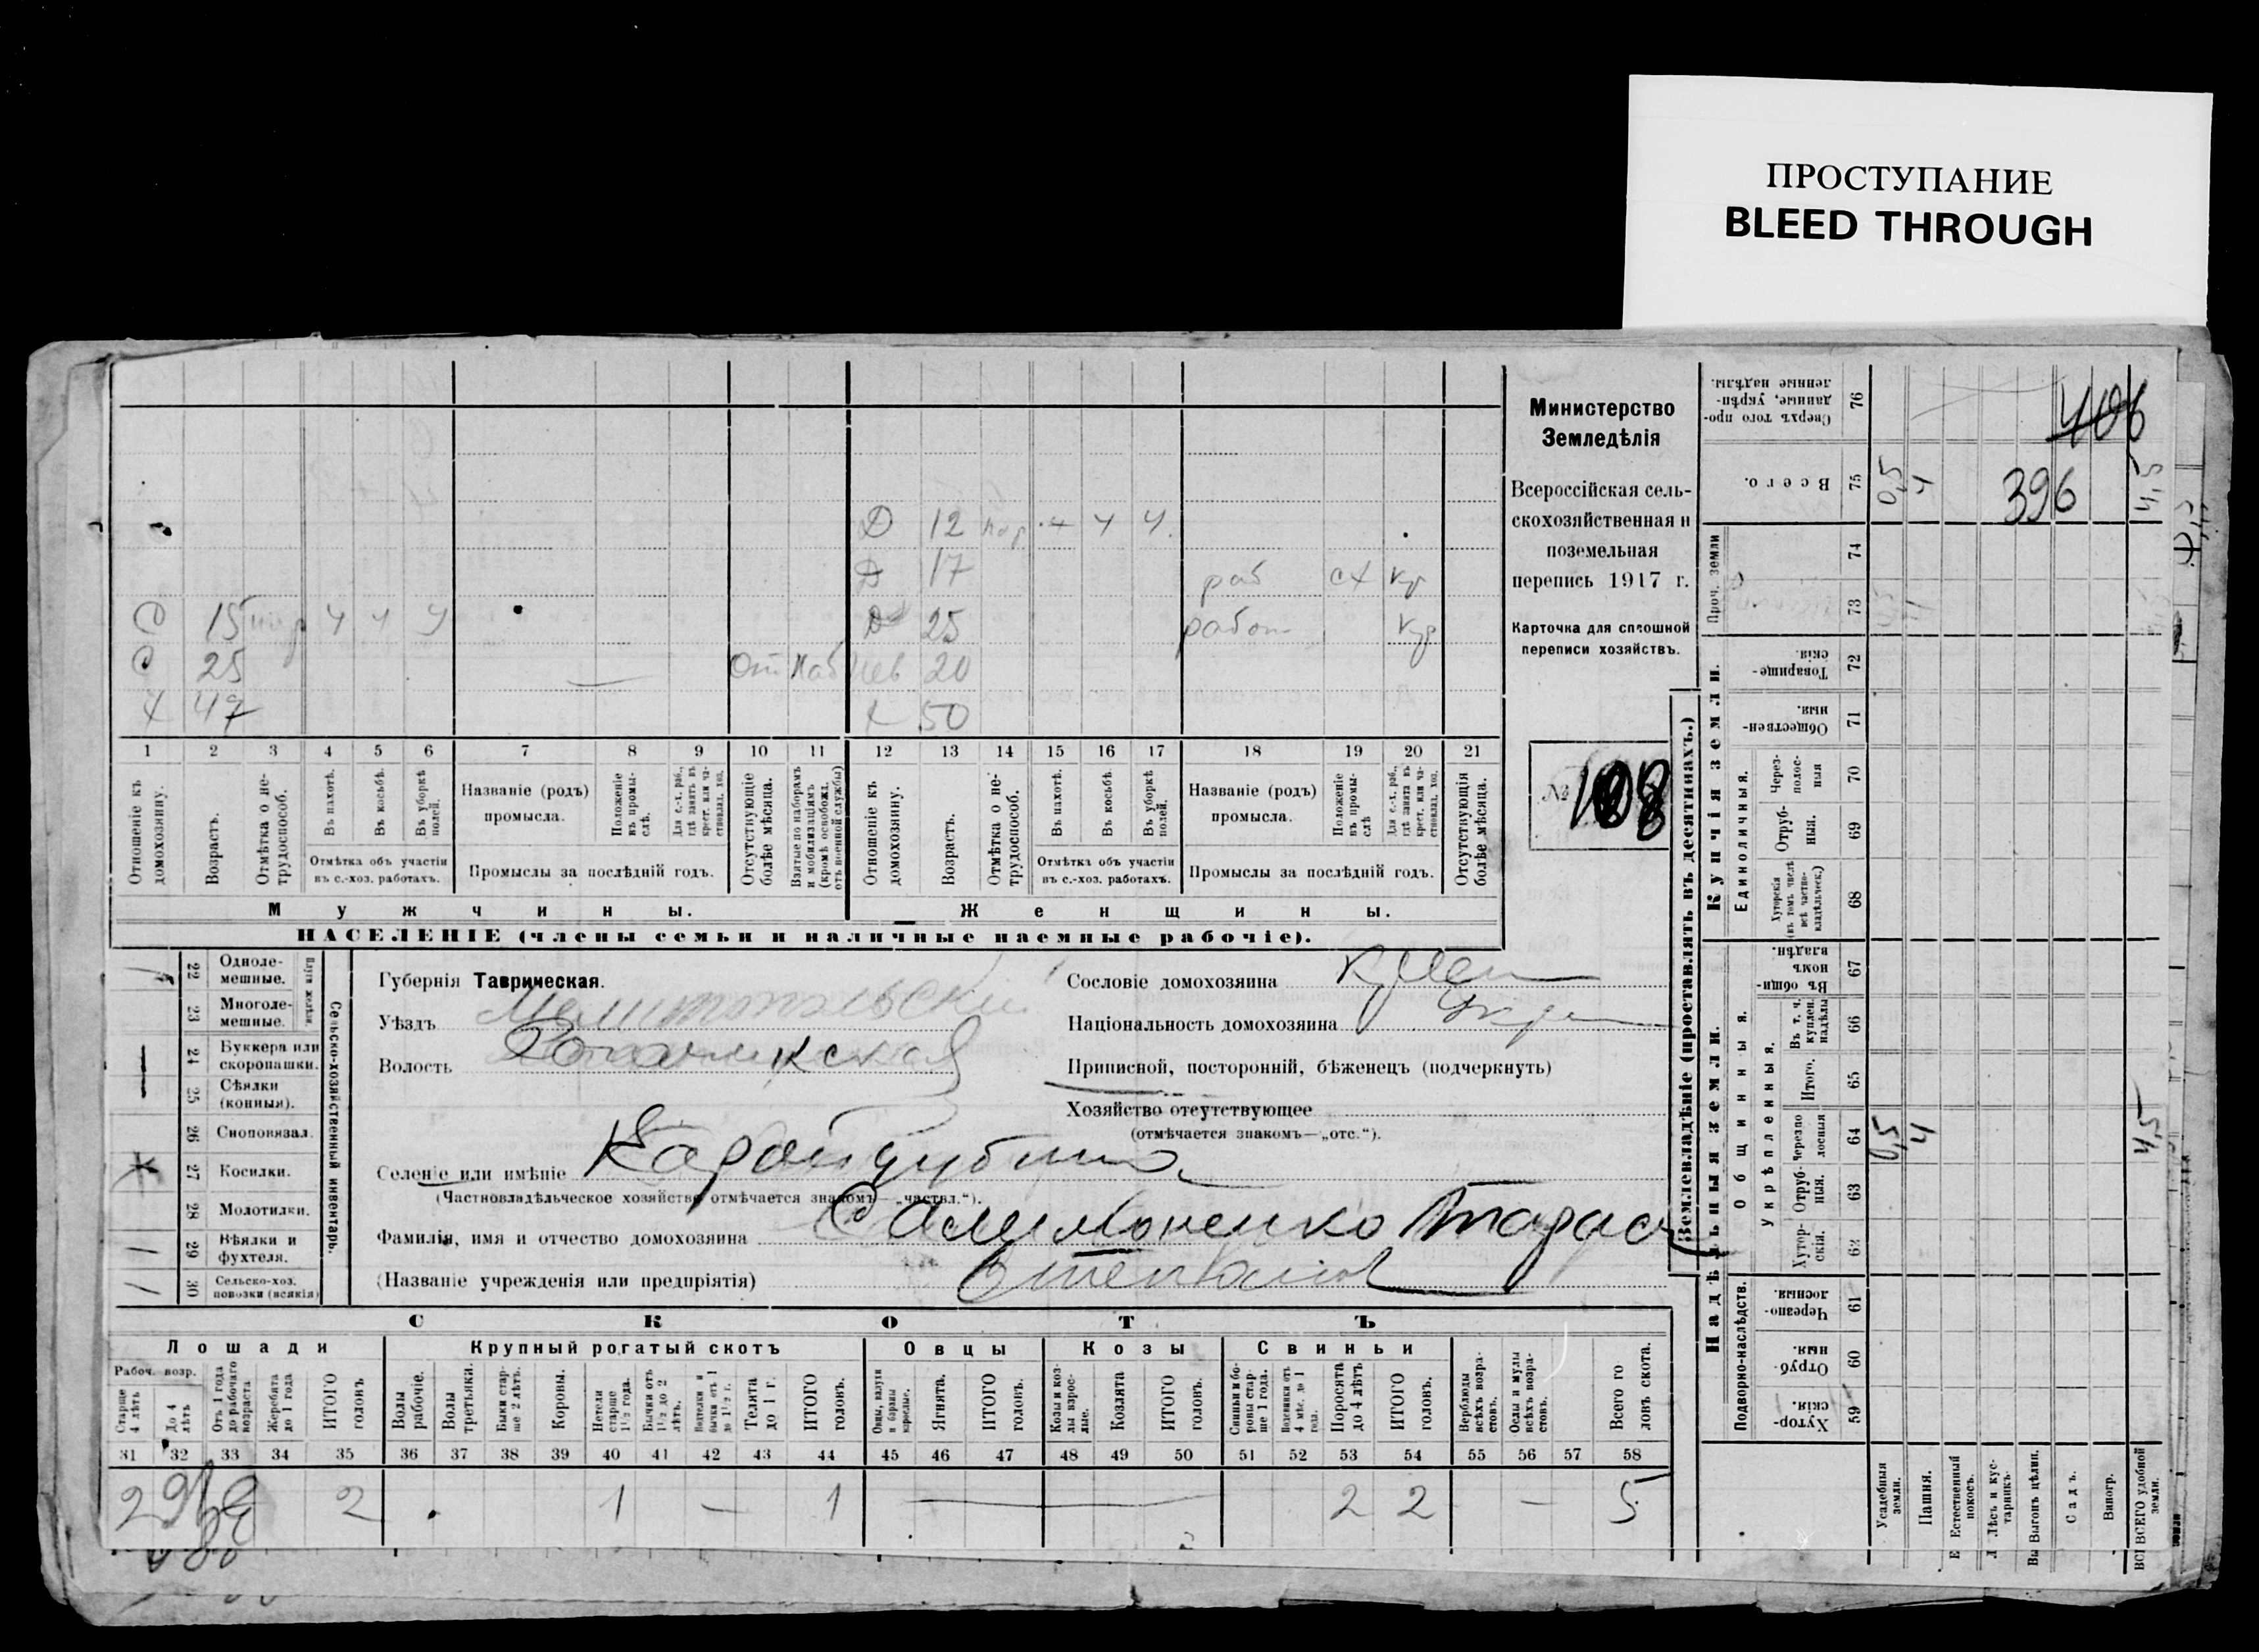 ПРОСТУПАНИЕ
BLEED THROUGH
Министерство
Земледѣлія
Всероссійская сель-
скохозяйственная и
поземельная
перепись 1917 г.
Карточка для сплошной
переписи хозяйствъ.
№ 108
406
396
Д 12 4 4 4
Д 17 раб сх кр
С 15 4 4 4 Д 25 работ кр
С 25 Отс Наб Нев 20
Х 47 Х 50
1 2 3 4 5 6 7 8 9 10 11 12 13 14 15 16 17 18 19 20 21
Отношеніе къ домохозяину.
Возрастъ.
Отмѣтка о не-трудоспособ.
Въ пахотѣ.
Въ косьбѣ.
Въ уборкѣ полей.
Отмѣтка объ участіи въ с.-хоз. работахъ.
Названіе (родъ) промысла.
Положеніе въ промы-слѣ.
Для с.-х. раб., гдѣ занятъ въ крест. или ча-стновлад. хоз.
Промыслы за послѣдній годъ.
Отсутствующіе болѣе мѣсяца.
Взятые по наборамъ и мобилизаціямъ (кромѣ освобожд. отъ военной службы)
Отношеніе къ домохозяину.
Возрастъ.
Отмѣтка о не-трудоспособ.
Въ пахотѣ.
Въ косьбѣ.
Въ уборкѣ полей.
Отмѣтка объ участіи въ с.-хоз. работахъ.
Названіе (родъ) промысла.
Положеніе въ промы-слѣ
Для с.-х. раб., гдѣ занята въ крест. или ча-стновлад. хоз.
Промыслы за послѣдній годъ.
Отсутствующія болѣе мѣсяца.
Мужчины. Женщины.
НАСЕЛЕНІЕ (члены семьи и наличные наемные рабочіе).
22 Одноле-мешные.
23 Многоле-мешные.
24 Буккера или скоропашки.
25 Сѣялки (конныя).
26 Сноповязал.
27 Косилки.
28 Молотилки.
29 Вѣялки и фухтеля.
30 Сельско-хоз. повозки (всякія)
Сельско-хозяйственный инвентарь.
Губернія Таврическая.
Уѣздъ Мелитопольскій
Волость
Селеніе или имѣніе
(Частновладѣльческое хозяйство отмѣчается знакомъ—„частвл.“).
Фамилія, имя и отчество домохозяина Самимоненко Тарас
(Названіе учрежденія или предпріятія) Степанов
Сословіе домохозяина
Національность домохозяина Укр
Приписной, посторонній, бѣженецъ (подчеркнуть)
Хозяйство отсутствующее
(отмѣчается знакомъ—„отс.“).
СКОТЪ
Лошади Крупный рогатый скотъ Овцы Козы Свиньи
Рабоч. возр.
Старше 4 лѣтъ
До 4 лѣтъ
Отъ 1 года до рабочаго возраста
Жеребята до 1 года
ИТОГО головъ
Волы рабочіе.
Волы третьяки.
Быки стар-ше 2 лѣтъ.
Коровы.
Нетели старше 1½ года.
Бычки отъ 1½ до 2 лѣтъ.
Телята до 1 г.
ИТОГО головъ.
Овцы, валухи и бараны взрослые.
Ягнята.
ИТОГО головъ.
Козы и коз-лы взрос-лые.
Козлята
ИТОГО головъ.
Свиньи и бо-ровы стар-ше 1 года.
Подсвинки отъ 4 мѣс. до 1 года.
Поросята до 4 лѣтъ
ИТОГО головъ.
Верблюды всѣхъ возра-стовъ.
Ослы и мулы всѣхъ возра-стовъ.
Всего го ловъ скота.
31 32 33 34 35 36 37 38 39 40 41 42 43 44 45 46 47 48 49 50 51 52 53 54 55 56 57 58
2 2 1 — 1 — 2 2 — 5
Землевладѣніе (проставлять въ десятинахъ.)
Купчія земли.
Надѣльныя земли.
76 Сверхъ того про-данные, укрѣп-ленные надѣлы.
75 Всего. 0,5 4 4,5
Проч. земли
74
73
72 Товарище-скія.
71 Обществен-ныя.
Единоличныя.
70 Через-полос-ныя
69 Отруб-ныя.
68 Хуторскія (въ томъ числѣ всѣ частно-владѣльческ.)
67 Въ общи-номъ владѣн.
Общинныя.
Укрѣпленныя.
66 Въ т. ч. куплен. надѣлы
65 Итого.
64 Черезпо лосныя 0,5 4 4,5
63 Отруб-ныя.
62 Хутор-скія.
Подворно-наслѣдств.
61 Черезпо-лосныя.
60 Отруб-ныя.
59 Хутор-скія.
Усадебныя земли.
Пашня.
Естественный покосъ.
Лѣсъ и кус-тарникъ.
Выгонъ цѣлин.
Садъ.
Виногр.
ВСЕГО удобной земли.